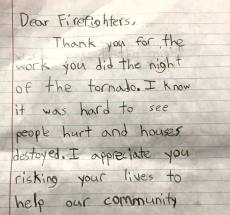 Dear Firefighters,
Thank you for the
work you did the night
of the tornado. I know
it was hard to see
people hurt and houses
destoyed. I appreciate you
risking your lives to
help our community